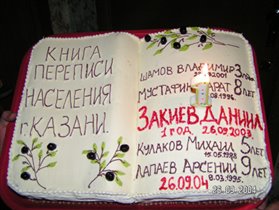 КНИГА
ПЕРЕПИСИ
НАСЕЛЕНИЯ
г. КАЗАНИ
ШАМОВ ВЛАДИМИР 3
2001
МУСТАФИН МАРАТ 8 ЛЕТ
08.1996.
ЗАКИЕВ ДАНИИЛ
1 ГОД 26.09.2003
КУЛАКОВ МИХАИЛ 5 ЛЕТ
15.05.1988
ЛАПАЕВ АРСЕНИЙ 9 ЛЕТ
8.03.1995.
26.09.04
26.09.2004